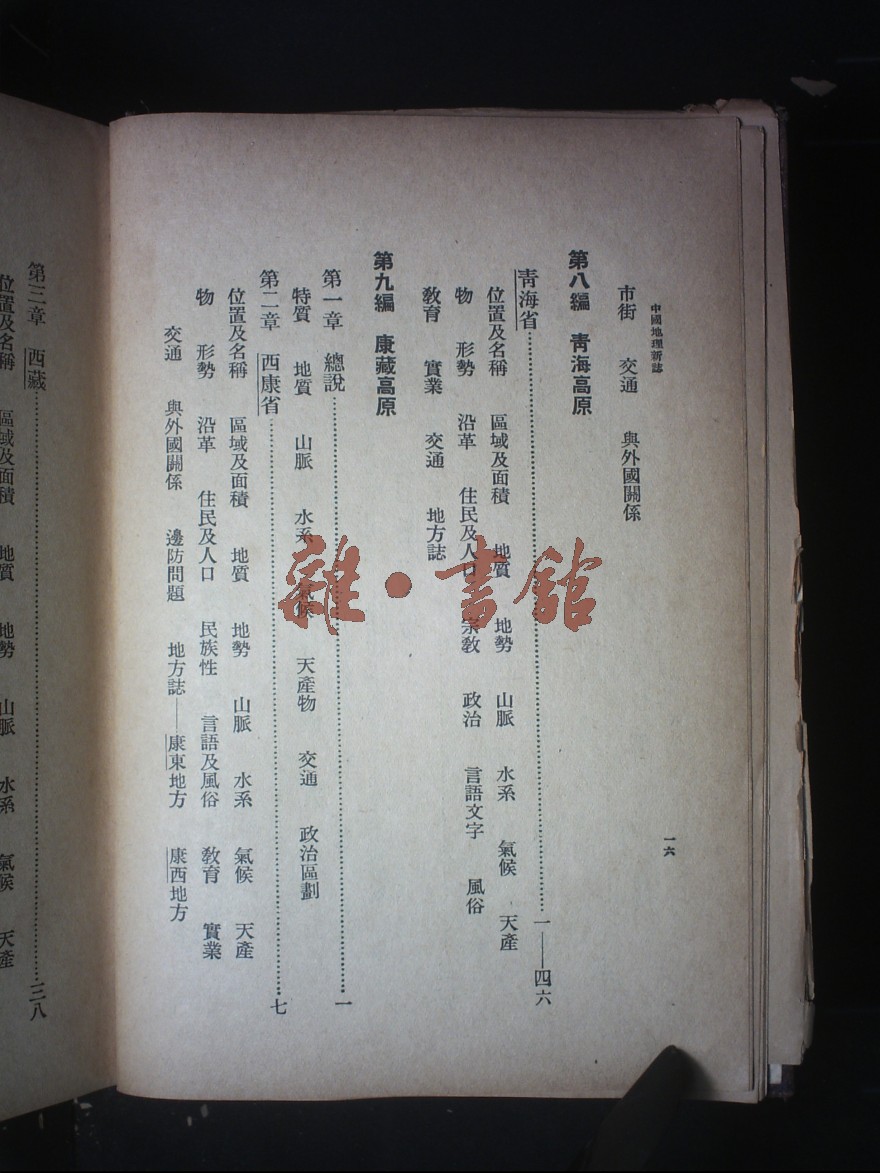 中國地理新誌
一六
市街 交通 與外國關係
第八編 靑海高原
靑海省……一——四六
位置及名稱 區域及面積 地質 地勢 山脈 水系 氣候 天產
物 形勢 沿革 住民及人口 宗敎 政治 言語文字 風俗
敎育 實業 交通 地方誌
第九編 康藏高原
第一章 總說……一
特質 地質 山脈 水系 氣候 天產物 交通 政治區劃
第二章 西康省……七
位置及名稱 區域及面積 地質 地勢 山脈 水系 氣候 天產
物 形勢 沿革 住民及人口 民族性 言語及風俗 敎育 實業
交通 與外國關係 邊防問題 地方誌——康東地方 康西地方
第三章 西藏……三八
位置及名稱 區域及面積 地質 地勢 山脈 水系 氣候 天產
雜·書館